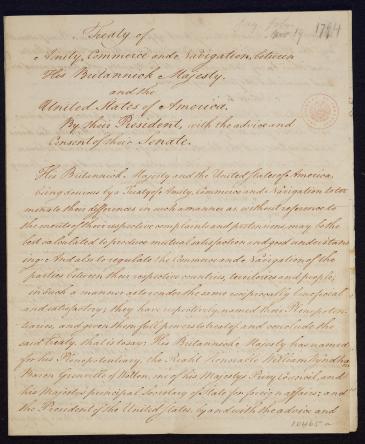 Nov 19 1794
Treaty of
Amity, Commerce and Navigation, between
His Britannick Majesty,
and the
United States of America,
By their President, with the advice and
Consent of their Senate.
His Britannick Majesty and the United States of America,
being desirous by a Treaty of Amity, Commerce and Navigation to ter
minate their differences in such a manner as without reference to
the merits of their respective complaints and pretensions, may be the
best calculated to produce mutual satisfaction and good understand
ing: And also to regulate the Commerce and Navigation of the
parties between their respective countries, territories and people,
in such a manner as to render the same reciprocally beneficial
and satisfactory; they have respectively named their Plenipoten
tiaries, and given them full powers to treat of and conclude the
said treaty, that is to say: His Britannick Majesty has named
for his Plenipotentiary, the Right Honorable William Wyndham
Baron Grenville of Wotton, one of his Majesty's Privy Council, and
his Majesty's principal Secretary of State for foreign affairs; and
the President of the United States, by and with the advice and
10465